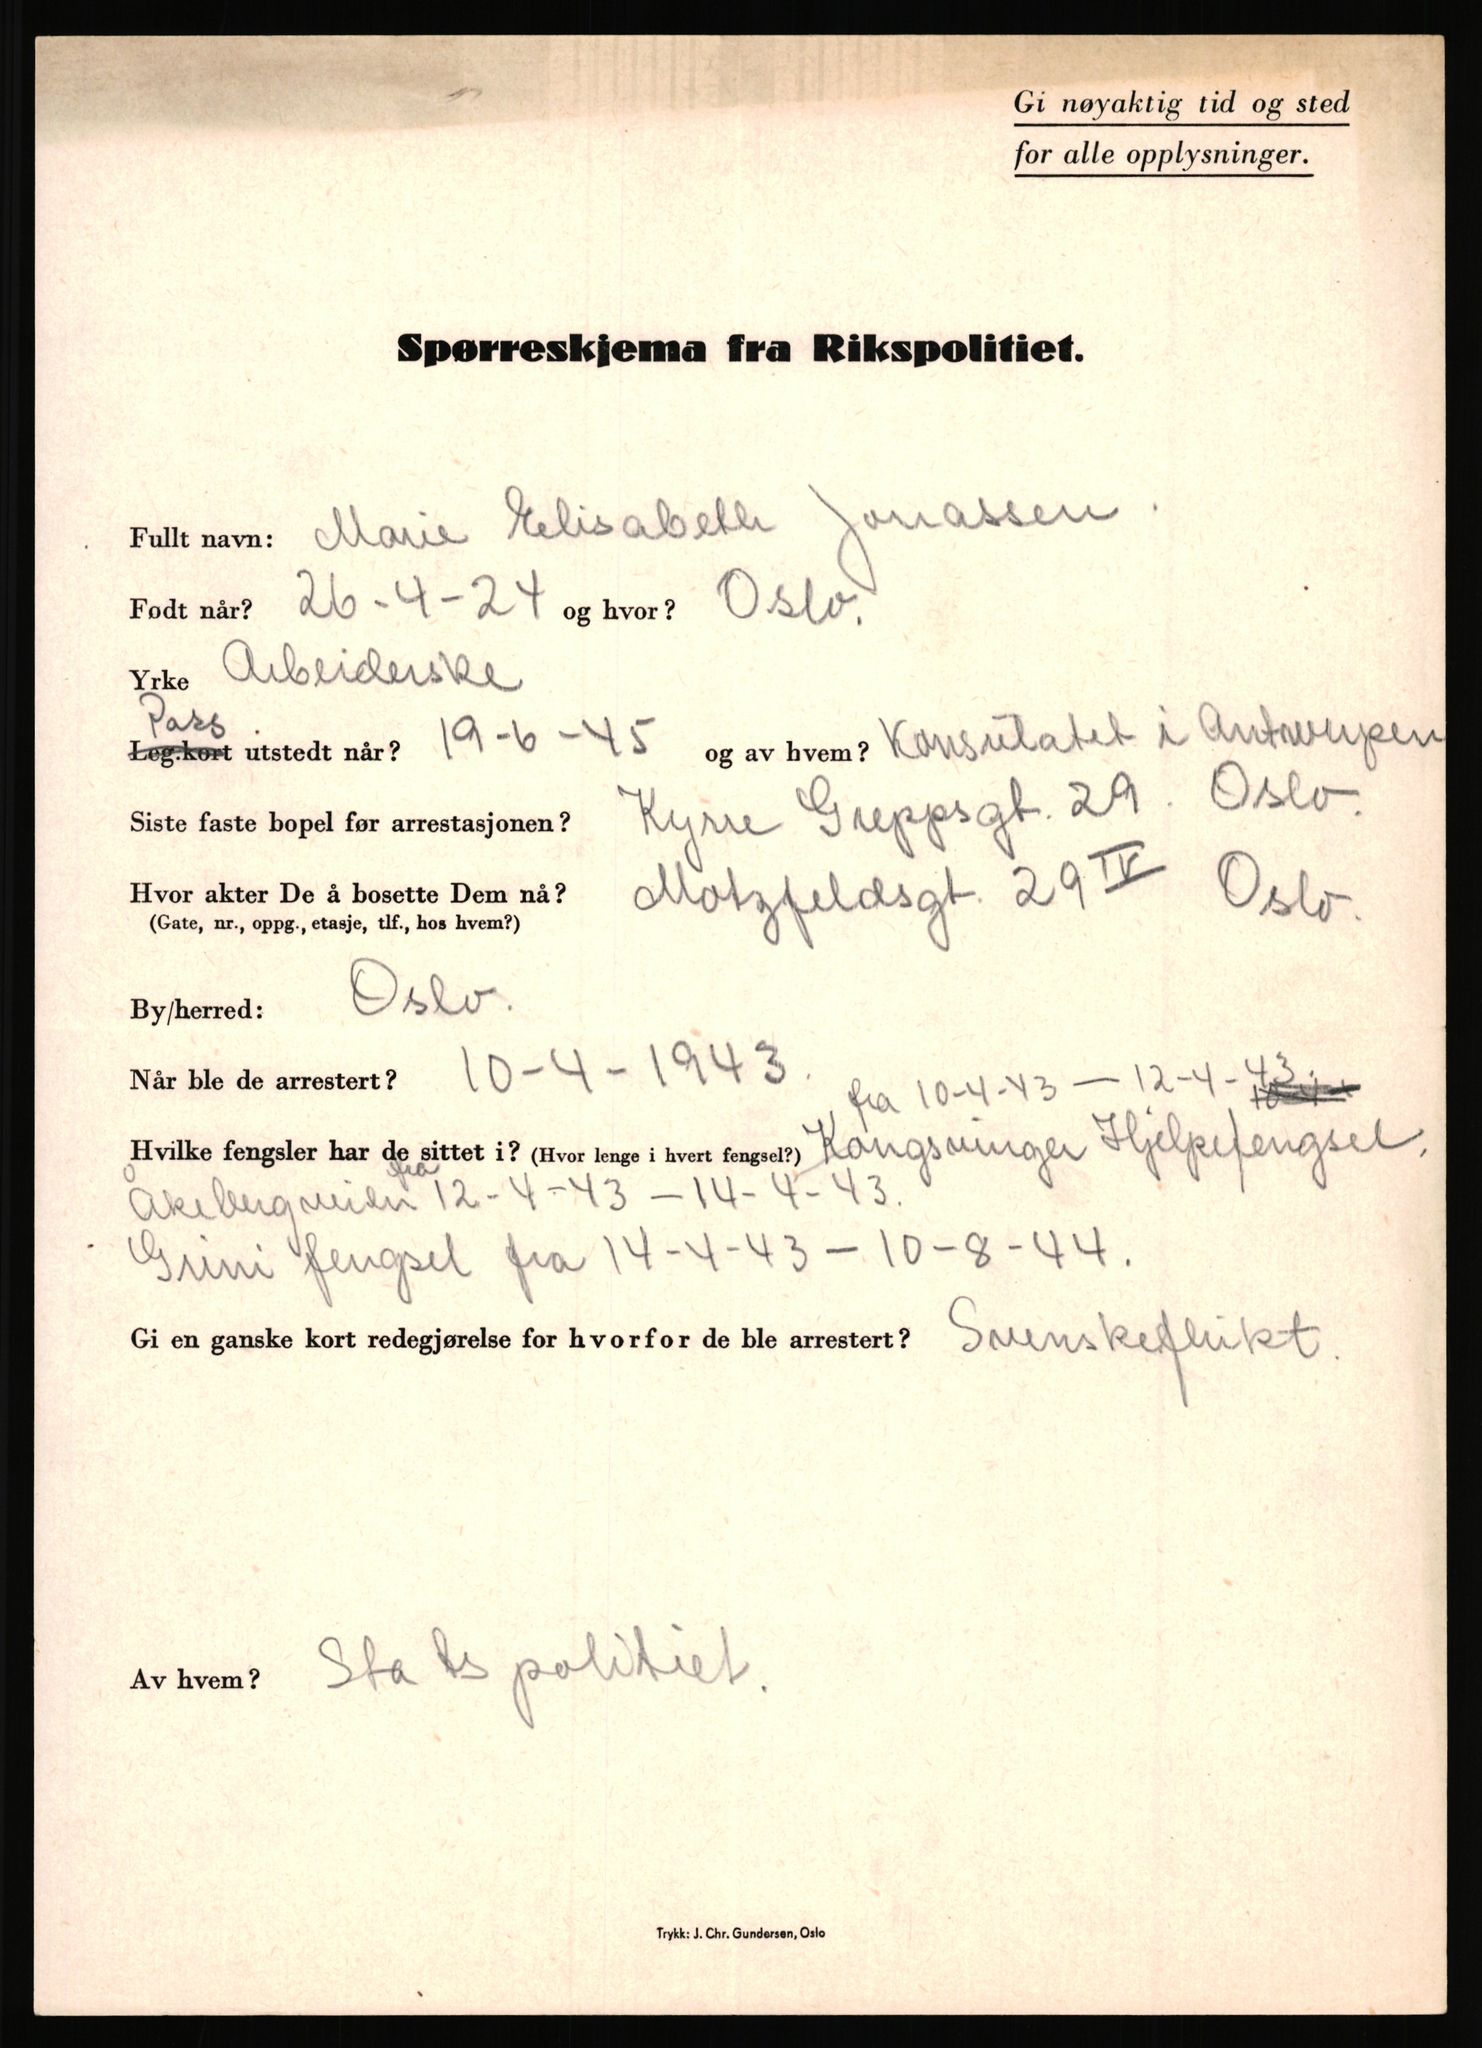 Gi nøyaktig tid og sted
for alle opplysninger.
Spørreskjema fra Rikspolitiet.
Fullt navn: Marie Elisabeth Jonassen.
Født når? 26-4-24 og hvor? Oslo.
Yrke Arbeiderske
Pass
Leg.kort utstedt når? 19-6-45 og av hvem? Konsulatet i Antwerpen
Siste faste bopel før arrestasjonen? Kyrre Greppsgt. 29. Oslo.
Hvor akter De å bosette Dem nå? Motzfeldsgt. 29 IV Oslo.
(Gate, nr., oppg., etasje, tlf., hos hvem?)
By/herred: Oslo.
Når ble de arrestert? 10-4-1943.
fra 10-4-43 — 12-4-43.
Hvilke fengsler har de sittet i? (Hvor lenge i hvert fengsel?) Kongsvinger Hjelpefengsel.
Åkebergveien fra 12-4-43 — 14-4-43.
Grini fengsel fra 14-4-43 — 10-8-44.
Gi en ganske kort redegjørelse for hvorfor de ble arrestert? Svenskeflukt.
Av hvem? Statspolitiet.
Trykk: J. Chr. Gundersen, Oslo